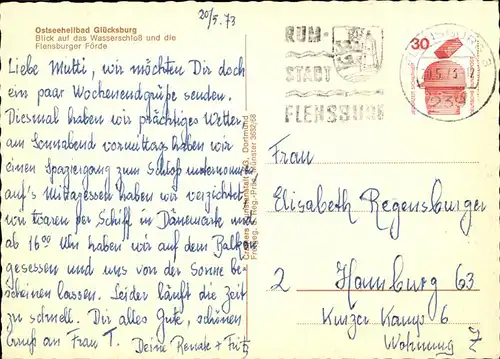 20/5.73
Ostseeheilbad Glücksburg
Blick auf das Wasserschloß und die
Flensburger Förde
Liebe Mutti, wir möchten Dir doch
ein paar Wochenendgrüße senden.
Diesmal haben wir prächtiges Wetter
am Sonnabend vormittag haben wir
einen Spaziergang zum Schloß unternommen
auf's Mittagessen haben wir verzichtet
wir waren per Schiff in Dänemark und
ab 16⁰⁰ Uhr haben wir auf dem Balkon
gesessen und uns von der Sonne be-
scheinen lassen. Leider läuft die Zeit
zu schnell. Dir alles Gute, schönen
Gruß an Frau T. Deine Renate + Fritz
Cramers Kunstanstalt KG, Dortmund
Freigeg. Reg.-Präs. Münster 3632/68
RUM-
STADT
FLENSBURG
30
239
Frau
Elisabeth Regensburger
2 Hamburg 63
Kurzer Kamp 6
Wohnung